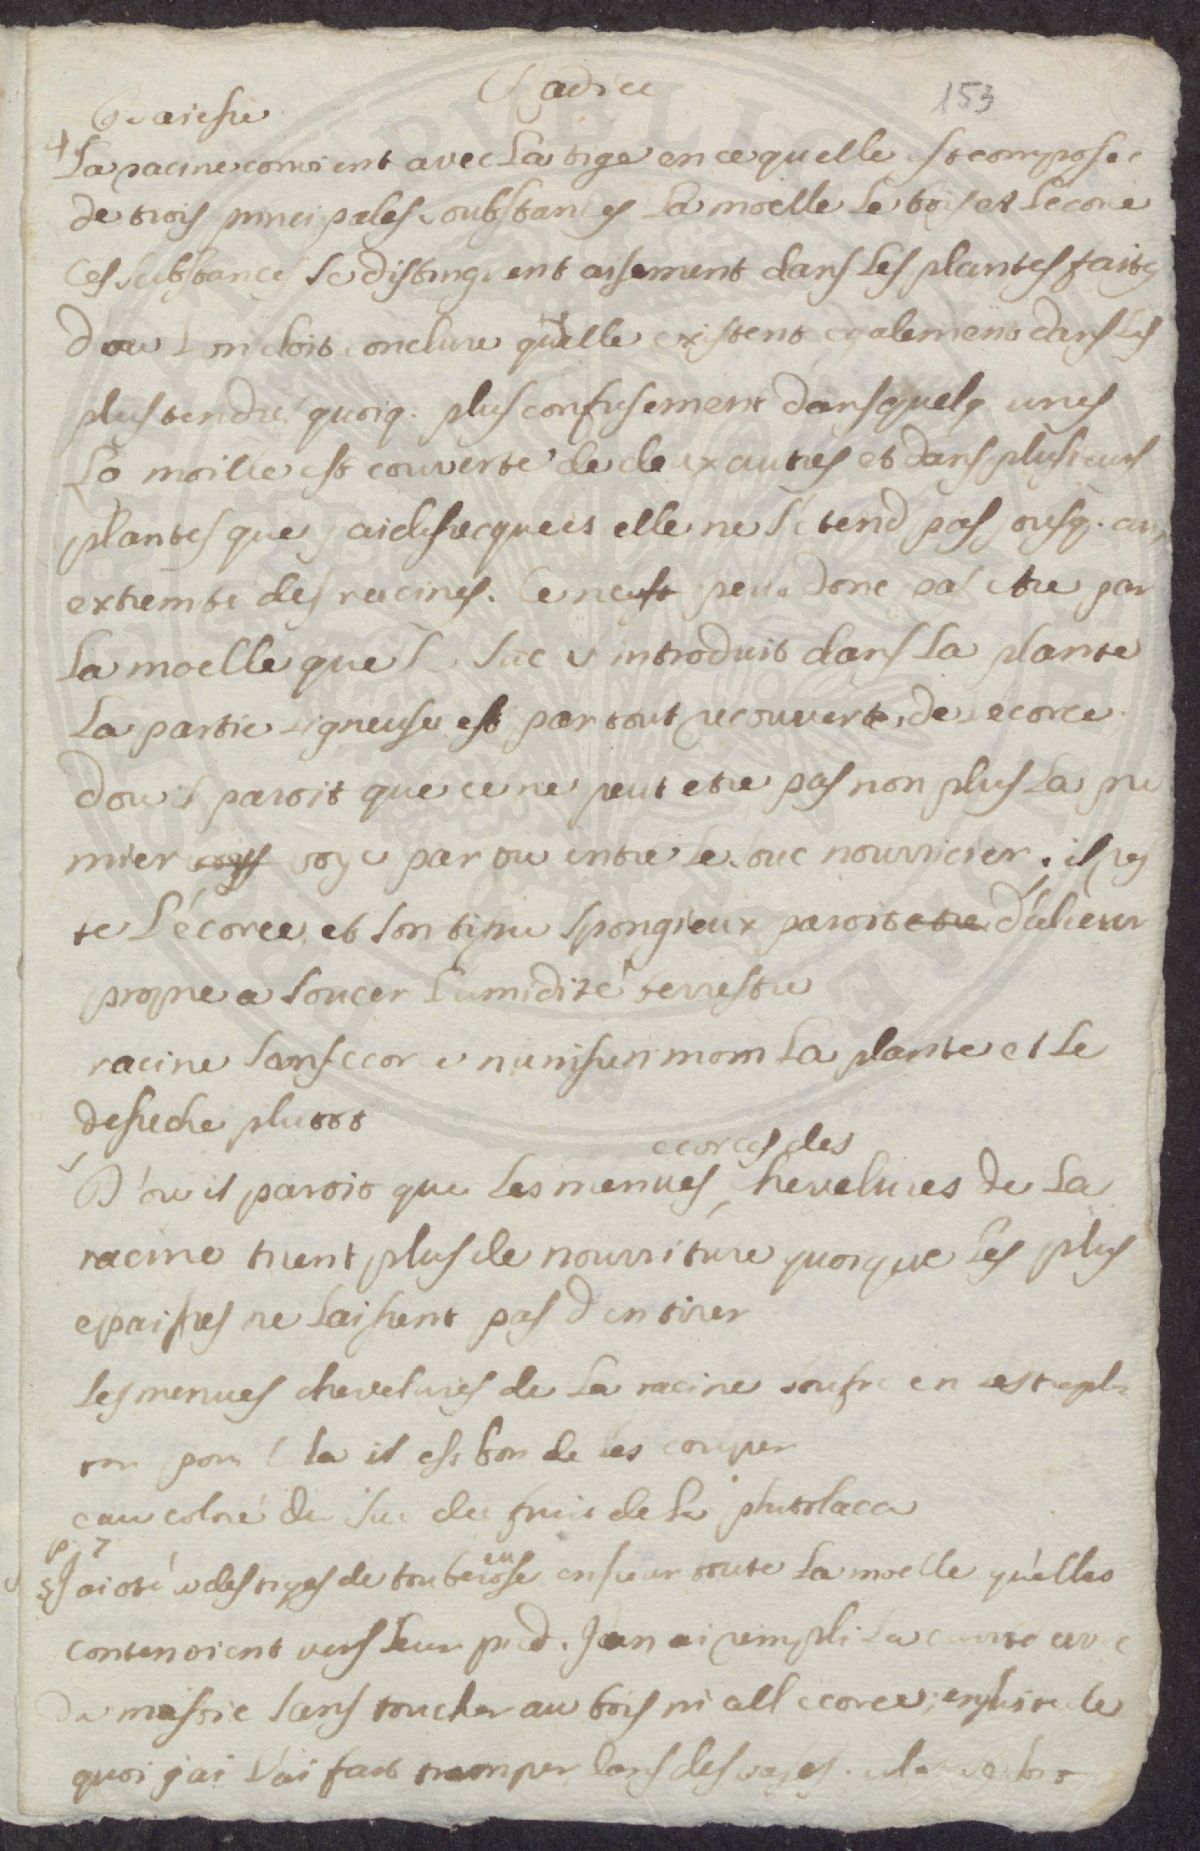 Radice
153
La racine convient avec La tige en ce quelle est composee
de trois principales soubstances La moelle Le bois et L'ecorce
Ces substances se distinguent aisement dans Les plantes faites
dou Lon doit conclure quelle existent egalement dans Les
plus tendres quoiq. plus confusement dans quelq unes
La moille est couverte de deux autres et dans plusieurs
plantes que jai dissecquees elle ne s'etend pas jusq. aux
extremite des racines. Ce ne peut donc pas etre par
La moelle que Le suc s'introduit dans La plante
La partie Ligneuse est par tout recouverte de Lecorce
dou il paroit que ce ne peut etre pas non plus La pre
mier voye par ou entre Le souc nourricier. il res
te L'écorce et son tissu spongieux paroit etre d'ailieur
propre a soucer L'umidité terrestre
racine sans ecorce nourissen moin La plante et Le
desseche plutost
ecorces des
D'ou il paroit que Les menues chevelures de La
racine tirent plus de nourriture quoique Les plus
epaisses ne Laissent pas d'en tirer
Les menues chevelures de La racine en
pour la il est bon de Les couper
eau coloré du suc du fruit de La phitolacca
p. 7
J'ai oté a des tiges de toubereuse en fleur toute La moelle qu'elles
contenoient vers Leur pied. J'en ai rempli La cavité avec
du mastic sans toucher au bois ni a ll ecorce, ensuite de
quoi j'ai L'ai fait tremper dans des vases